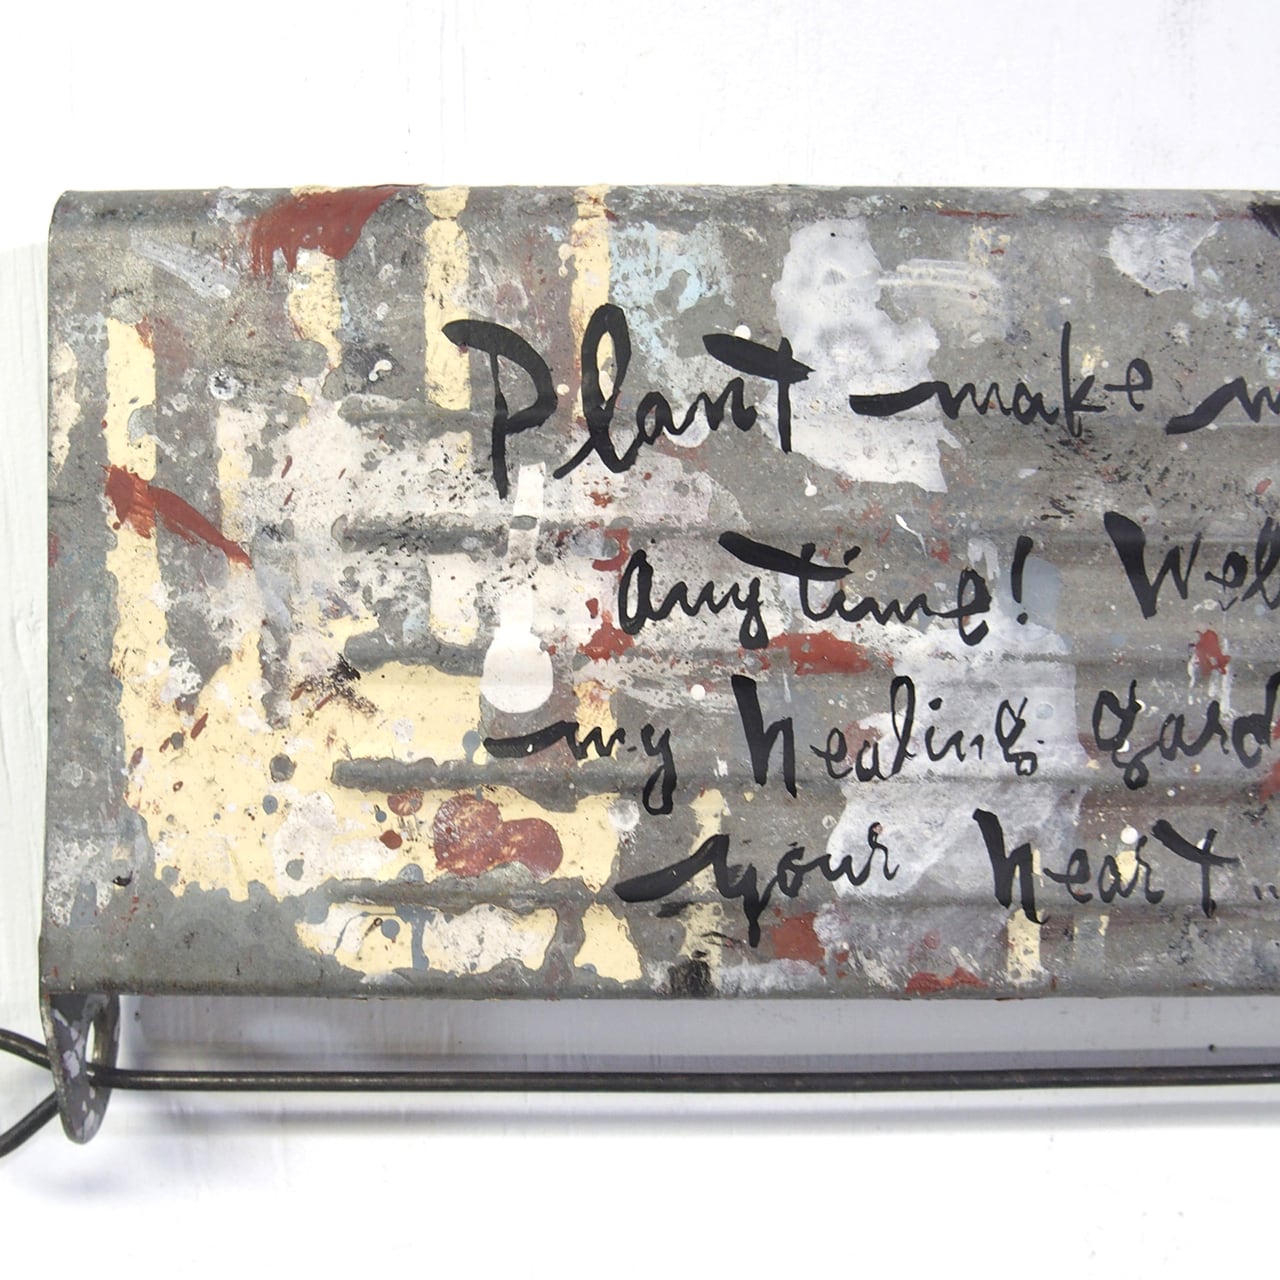 Plant make
anytime! Wel
my healing gard
your heart..